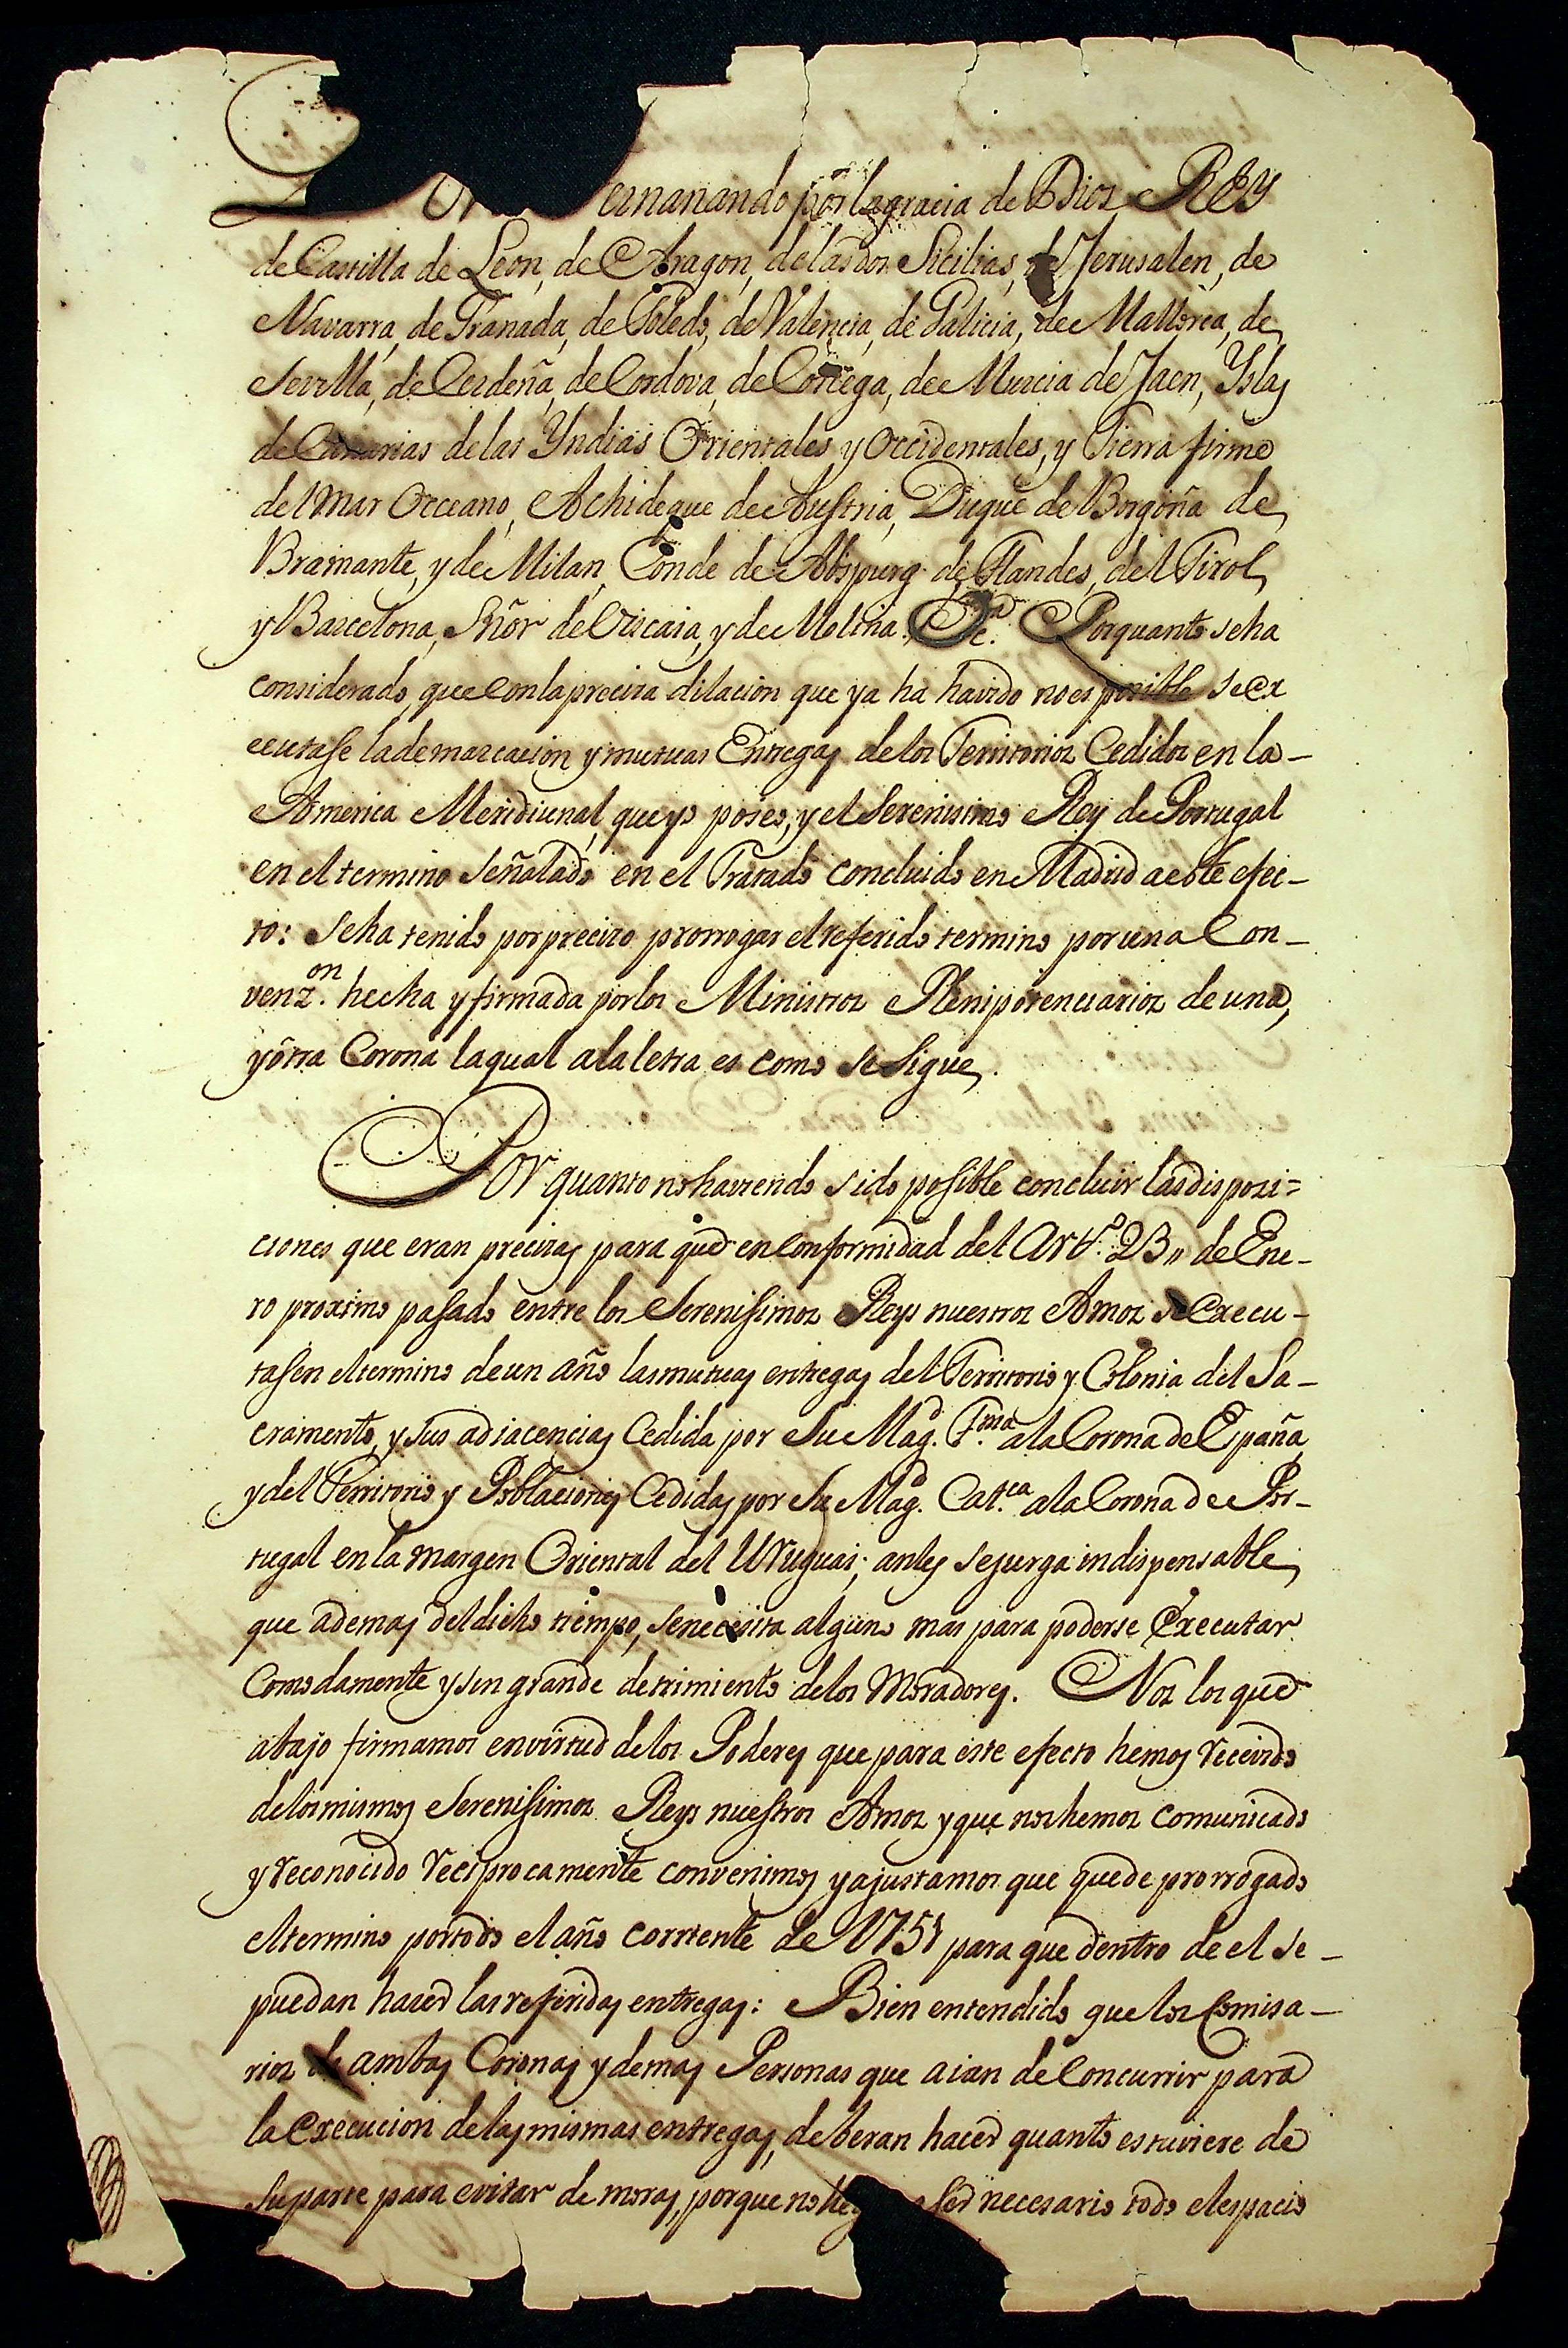 ernanando por lagracia de Dios REY
de Castilla de Leon, de Aragon, delasdos Sicilias, de Jerusalen, de
Navarra, de Granada, de Toledo, de Valencia, de Galicia, de Mallorca, de
Sevilla, de Cerdeña, de Cordova, de Corcega, de Murcia de Jaen, Yslas
de Canarias delas Yndias Orientales y Occidentales, y Tierra firme
del Mar Occeano, Achideque de Austria, Duque de Borgoña de
Bramante, y de Milan, Conde de Abspurg de Flandes, del Tirol,
y Barcelona, Señor de Viscaia, y de Molina &c.ª Porquanto seha
considerado, que con laprecisa dilacion que ya ha havido no es posible seex
ecutase lademarcacion y mutuas Entregas delos Territorios Cedidos en la-
America Meridiunal, que yo poseo, y el Serenisimo Rey de Portugal
en el termino Señalado en el Tratado concluido en Madrid aeste efec-
to: Seha tenido por preciso prorrogar el referido termino por una Con-
venz.on hecha y firmada por los Ministros Plenipotenciarios de una,
y otra Corona laqual alaletra es como se Sigue.
Por quanto nohaviendo sido posible concluir lasdisposi=
ciones que eran precisas para que en conformidad del Art.º 23,, de Ene-
ro proximo pasado entre los Serenisimos Reys nuestros Amos se Execu-
tasen eltermino deun año lasmutuas entregas del Territorio y Colonia del Sa-
cramento, y sus adiacencias Cedida por Su Mag.d F.ma ala Corona de España
y del Territorio y Poblaciones Cedidas por Su Mag.d Cat.ca ala Corona de Por-
tugal en la margen Oriental del Uruguai; antes sejuzga indispensable
que ademas deldicho tiempo, senecesita alguno mas para poderse Executar
Comodamente y sin grande detrimiento delos Moradores. Nos los que
abajo firmamos envirtud delos Poderes que para este efecto hemos receivido
delosmismos Serenisimos Reys nuestros Amos y que noshemos comunicado
y reconocido reciprocamente convenimos yajustamos que quede prorrogado
eltermino portodo el año corriente de 1751 para que dentro de el se-
puedan hacer las referidas entregas: Bien entendido que los Comisa-
rios de ambas Coronas y demas Personas que aian de Concurrir para
la Execucion delasmismas entregas, deberan hacer quanto estuviere de
suparte para evitar demoras, porque no ser necesario todo elespacio